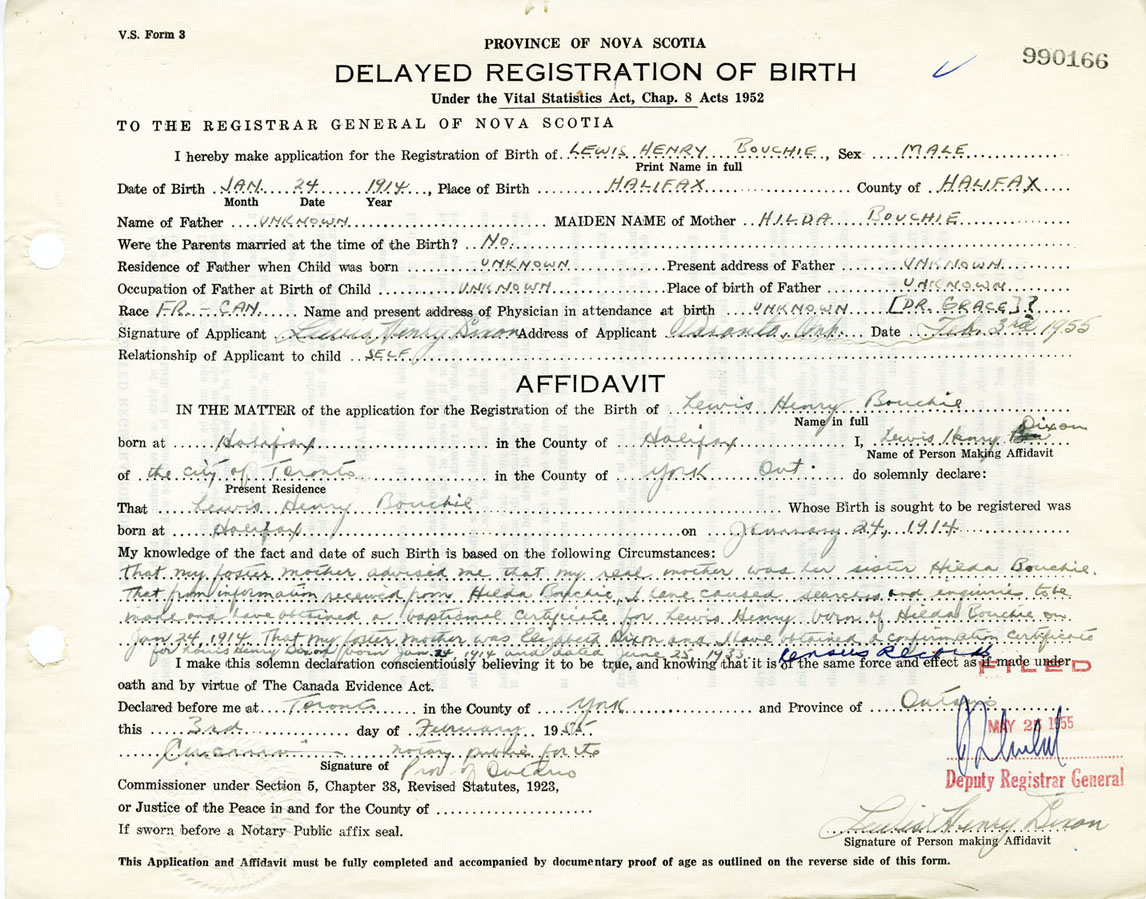 V.S. Form 3
PROVINCE OF NOVA SCOTIA
990166
DELAYED REGISTRATION OF BIRTH
Under the Vital Statistics Act, Chap. 8 Acts 1952
TO THE REGISTRAR GENERAL OF NOVA SCOTIA
I hereby make application for the Registration of Birth of LEWIS HENRY BOUCHIE, Sex MALE
Print Name in full
Date of Birth JAN. 24 1914, Place of Birth HALIFAX County of HALIFAX
Month Date Year
Name of Father UNKNOWN MAIDEN NAME of Mother HILDA BOUCHIE
Were the Parents married at the time of the Birth? No.
Residence of Father when Child was born UNKNOWN Present address of Father UNKNOWN
Occupation of Father at Birth of Child UNKNOWN Place of birth of Father UNKNOWN
Race FR.-CAN. Name and present address of Physician in attendance at birth UNKNOWN [DR. GRACE]?
Signature of Applicant Lewis Henry Dixon Address of Applicant Toronto, Ont. Date Feb. 3rd 1955
Relationship of Applicant to child SELF
AFFIDAVIT
IN THE MATTER of the application for the Registration of the Birth of Lewis Henry Bouchie
Name in full
born at Halifax in the County of Halifax I, Lewis Henry Dixon
Name of Person Making Affidavit
of the city of Toronto in the County of York Ont. do solemnly declare:
Present Residence
That Lewis Henry Bouchie Whose Birth is sought to be registered was
born at Halifax on January 24, 1914.
My knowledge of the fact and date of such Birth is based on the following Circumstances:
That my foster mother advised me that my real mother was her sister Hilda Bouchie.
That from information received from Hilda Bouchie, I have caused searches and enquiries to be
made and have obtained a baptismal certificate for Lewis Henry born of Hilda Bouchie on
Jan 24, 1914. That my foster mother was Elizabeth Dixon and I have obtained a confirmation certificate
for Louis Henry Dixon born Jan. 24 1914 and dated June 25, 1933. Census Records
I make this solemn declaration conscientiously believing it to be true, and knowing that it is of the same force and effect as if made under
FILED
oath and by virtue of The Canada Evidence Act.
Declared before me at Toronto in the County of York and Province of Ontario
this 3rd day of February 1955
MAY 2 1955
notary public for the
Signature of Prov. of Ontario
Deputy Registrar General
Commissioner under Section 5, Chapter 38, Revised Statutes, 1923,
or Justice of the Peace in and for the County of
Lewis Henry Dixon
If sworn before a Notary Public affix seal.
Signature of Person making Affidavit
This Application and Affidavit must be fully completed and accompanied by documentary proof of age as outlined on the reverse side of this form.